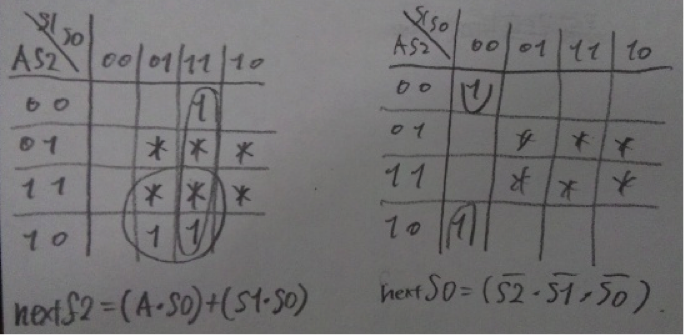 S1 S0
A S2 00 01 11 10
00 1
01 * * *
11 * * *
10 1 1
nextS2=(A·S0)+(S1·S0)
S1 S0
A S2 00 01 11 10
00 1
01 * * *
11 * * *
10 1
next S0=(S2·S1·S0)